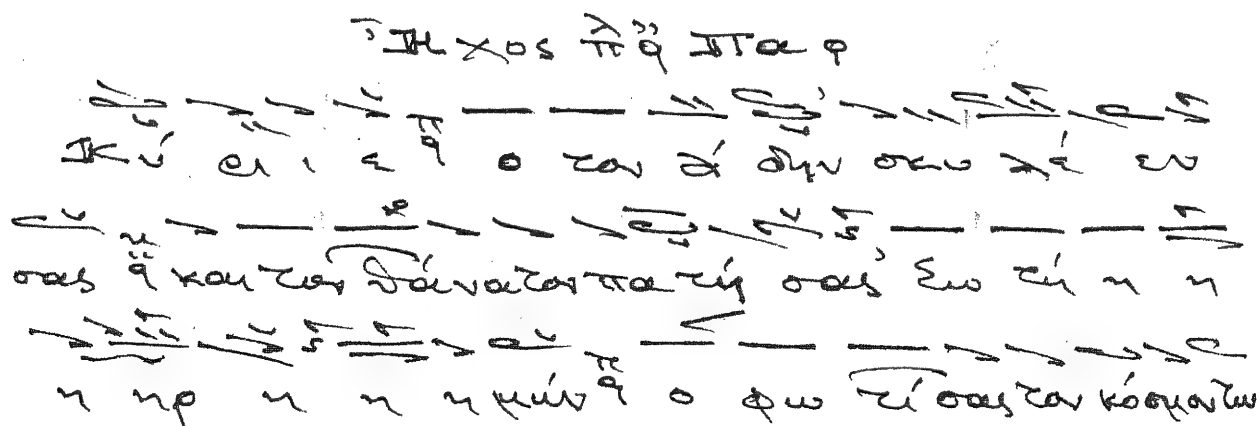 Ἦχος λ πα Πα ρ
Κύ ρι ι ε πα ο τον ᾅ δην σκυ λεύ ευ
σας κε και τον θάνατον πα τή σας Σω τή η η
η ηρ η η η μών πα ο φω τί σας τον κόσμον τω